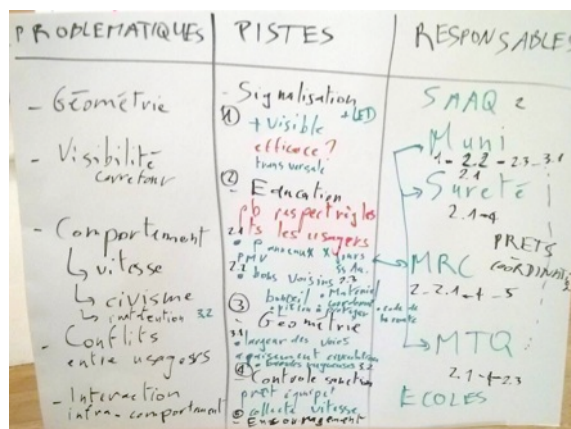 PROBLEMATIQUES
- Géométrie
- Visibilité
carrefour
- Comportement
↳ vitesse
↳ civisme
↳ inattention 3.2
- Conflits
entre usagers
- Interaction
infra-comportement
PISTES
- Signalisation
① + visible + LED
efficace ?
transversale
② - Education
pb respect règles
ts les usagers
2.1 • panneaux
PMV
2.2 • bons voisins 2.3
• Matériel
à protéger
• code de
la route
③ - Géométrie
3.1 • largeur des voies
apaisement circulation
3.2
④ - Controle sanction
prêt équipe!
⑤ collecte vitesse
- Encouragement
RESPONSABLES
SMAQ 2
Muni
1 - 2.2 - 2.3 - 3.1
2.1
Sureté
2.1 - 4
PRETS
MRC
2 - 2.1 - 4 - 5
MTQ
2.1 - 4 - 2.3
ECOLES